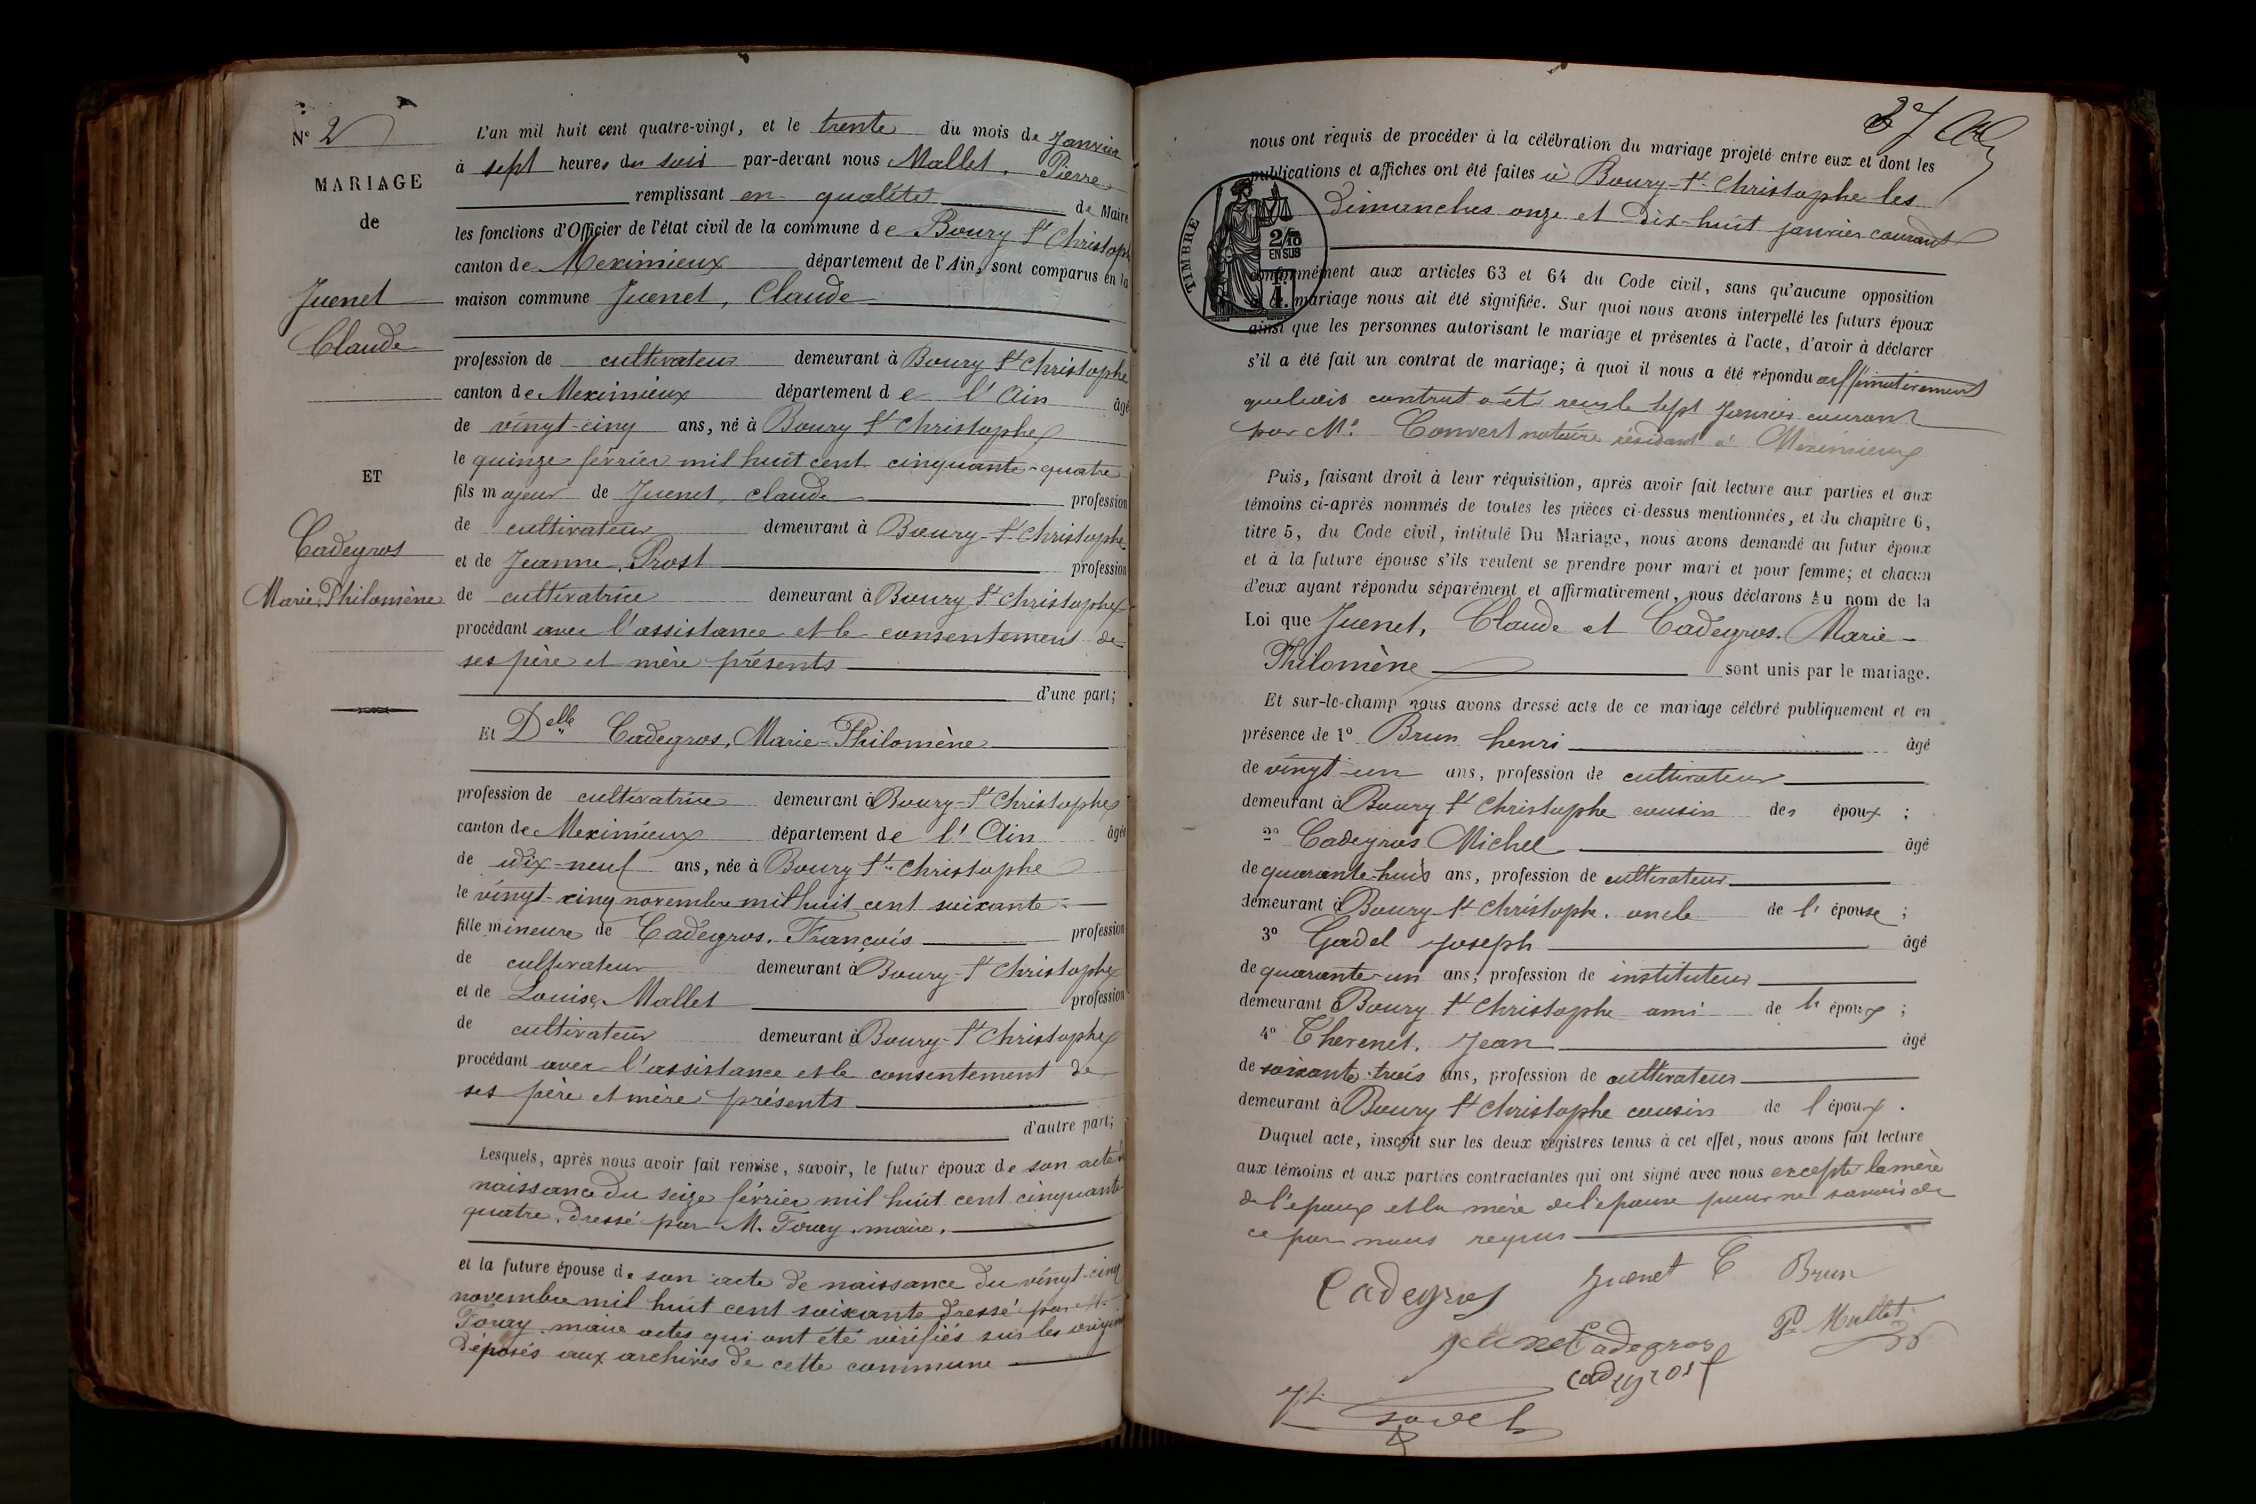 N° 2
MARIAGE
de
Juenet
Claude
ET
Cadegros
Marie Philomène
L'an mil huit cent quatre-vingt, et le trente du mois de Janvier
à sept heures du soir par-devant nous Mallet, Pierre
remplissant en qualité de Maire
les fonctions d'Officier de l'état civil de la commune de Bourg St Christophe
canton de Meximieux département de l'Ain, sont comparus en la
maison commune Juenet, Claude
profession de cultivateur demeurant à Bourg St Christophe
canton de Meximieux département de l'Ain âgé
de vingt-cinq ans, né à Bourg St Christophe
le quinze février mil huit cent cinquante-quatre
fils majeur de Juenet, claude profession
de cultivateur demeurant à Bourg-St Christophe
et de Jeanne Prost profession
de cultivatrice demeurant à Bourg St Christophe
procédant avec l'assistance et le consentement de
ses père et mère présents
d'une part;
Et Delle Cadegros, Marie-Philomène
profession de cultivatrice demeurant à Bourg-St Christophe
canton de Meximieux département de l'Ain âgée
de dix-neuf ans, née à Bourg St Christophe
le vingt-cinq novembre mil huit cent soixante
fille mineure de Cadegros, François profession
de cultivateur demeurant à Bourg-St Christophe
et de Louise Mallet profession
de cultivateur demeurant à Bourg-St Christophe
procédant avec l'assistance et le consentement de
ses père et mère présents
d'autre part;
Lesquels, après nous avoir fait remise, savoir, le futur époux de son acte de
naissance du seize février mil huit cent cinquante
quatre, dressé par M. Touny, maire.
et la future épouse de son acte de naissance du vingt-cinq
novembre mil huit cent soixante dressé par M.
Touny, maire actes qui ont été vérifiés sur les originaux
déposés aux archives de cette commune
37
nous ont requis de procéder à la célébration du mariage projeté entre eux et dont les
publications et affiches ont été faites à Bourg-St-Christophe les
dimanches onze et dix-huit janvier courant
TIMBRE
2/10
EN SUS
conformément aux articles 63 et 64 du Code civil, sans qu'aucune opposition
mariage nous ait été signifiée. Sur quoi nous avons interpellé les futurs époux
ainsi que les personnes autorisant le mariage et présentes à l'acte, d'avoir à déclarer
s'il a été fait un contrat de mariage; à quoi il nous a été répondu affirmativement
queledit contrat a été reçu le sept Janvier courant
par Me Convert notaire résidant à Meximieux
Puis, faisant droit à leur réquisition, après avoir fait lecture aux parties et aux
témoins ci-après nommés de toutes les pièces ci-dessus mentionnées, et du chapitre 6,
titre 5, du Code civil, intitulé Du Mariage, nous avons demandé au futur époux
et à la future épouse s'ils veulent se prendre pour mari et pour femme; et chacun
d'eux ayant répondu séparément et affirmativement, nous déclarons au nom de la
Loi que Juenet, Claude et Cadegros, Marie-
Philomène sont unis par le mariage.
Et sur-le-champ nous avons dressé acte de ce mariage célébré publiquement et en
présence de 1° Brun henri âgé
de vingt-un ans, profession de cultivateur
demeurant à Bourg St Christophe cousin des époux ;
2° Cadegros Michel âgé
de quarante-huit ans, profession de cultivateur
demeurant à Bourg-St Christophe, oncle de l'épouse ;
3° Gadel Joseph âgé
de quarante-un ans, profession de instituteur
demeurant à Bourg St Christophe ami de l'époux ;
4° Thevenet, Jean âgé
de soixante-trois ans, profession de cultivateur
demeurant à Bourg St Christophe cousin de l'époux.
Duquel acte, inscrit sur les deux registres tenus à cet effet, nous avons fait lecture
aux témoins et aux parties contractantes qui ont signé avec nous excepté la mère
de l'époux et la mère de l'épouse pour ne savoir de
ce par nous requis
Cadegros Juenet C Brun
Juenet Cadegros P. Mallet
Cadegros f
Gadel